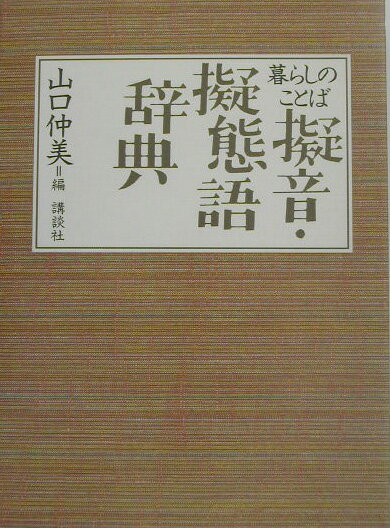 暮らしの
ことば
擬音・
擬態語
辞典
山口仲美=編 講談社